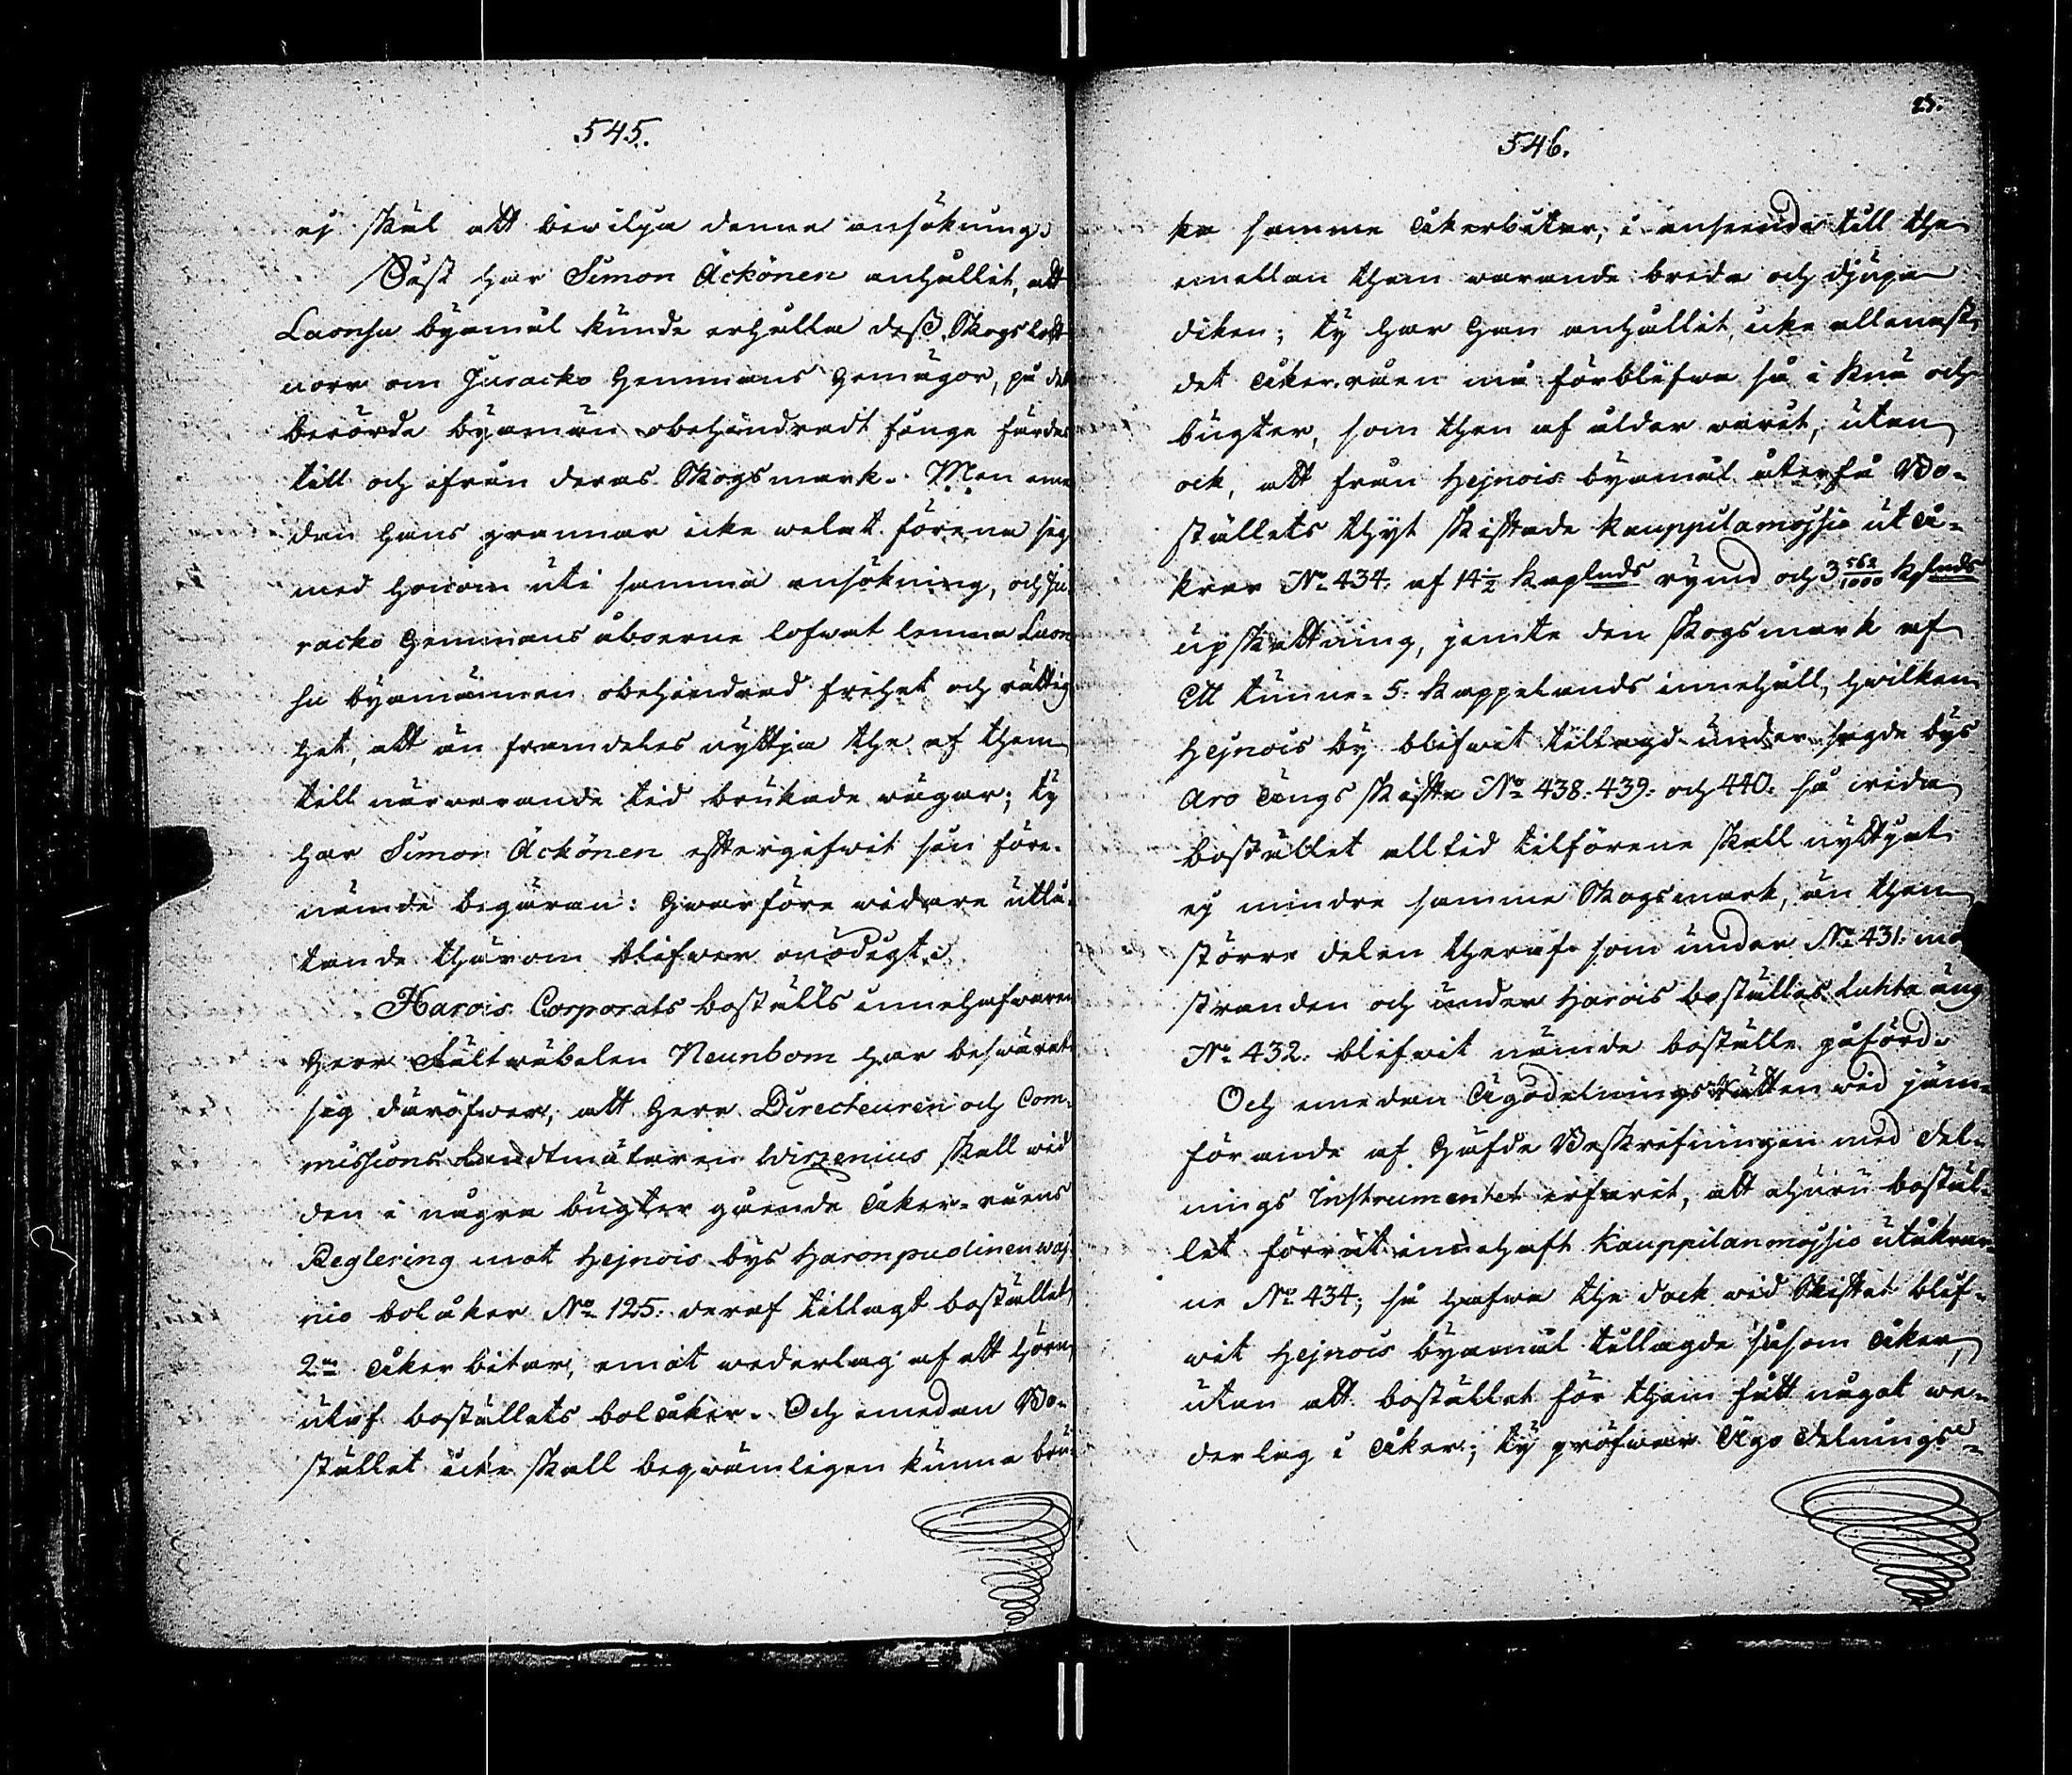 545.
ej skäl att bewilja denna ansökning.
Sist har Simon Äckönen anhållit, att
Laonsu byamål kunde erhålla dess Skogslott
norr om Juracko Hemmans Hemägor, på det
berörde byamän obehindradt finge färdas
till och ifrån deras Skogsmark. Men eme
dan hans grannar icke welat förena sig
med honom uti samma ansökning, och Ju
racko Hemmans åboerne lofwat lemna Laon
su byamännen obehindrad frihet och rättig
het, att än framdeles nyttja the af them
till närwarande tid brukade wägar; ty
har Simon Äckönen eftergifwit sin före-
nämde begäran: Hwarföre widare utlå-
tande thärom blifwer onödigt.
Harois Corporals boställs innehafwaren
Herr Fältwäbelen Neunbom har beswärat
sig däröfwer, att Herr Directeuren och Com-
missions Landtmätaren Wirzenius skall wid
den i några bugter gående åker-råens
Reglering mot Hejnois bys Haronpudinen waj
nio bolåker No 125. deraf tillagt bostället
2ne åkerbitar, emot wederlag af ett hörn
utaf boställets bolåker. Och emedan Bo-
stället icke skall beqwämligen kunna bru-
25.
546.
ka samma åkerbitar, i anseende till the
emellan them warande breda och djupa
diken; ty har Han anhållit, icke allenast
det åker-råen må förblifwa så i knä och
bugter, som then af ålder warit, utan
ock, att från Hejnois byamål återfå Bo-
ställets thyt skiftade Kauppilamojsio utå-
krar No 434. af 14 1/2 Kaplnds rymd och 3 562/1000 Kplnds
upskattning, jemte den Skogsmark af
Ett tunne- 5. Kappelands innehåll, hwilken
Hejnois by blifwit tillagd under sagde bys
Aro ängs skifte No 438. 439. och 440. så wida
bostället alltid tilförene skall nyttjat
ej mindre samma Skogsmark, än then
större delen theraf som under No 431. mo
stranden och under Harois boställes Luhta äng
No 432. blifwit nämde boställe påförd.
Och emedan Ägodelnings Rätten wid jäm-
förande af Häfde Beskrifningen med Del-
nings Instrumentet erfarit, att ehuru bostäl-
let förrut innehaft Kauppilanmojsio utåkrar-
ne No 434; så hafwa the dock wid Skiftet blif-
wit Hejnois byamål tillagde såsom åker,
utan att bostället för them fått något we-
derlag i åker; ty pröfwar Ägo Delnings-